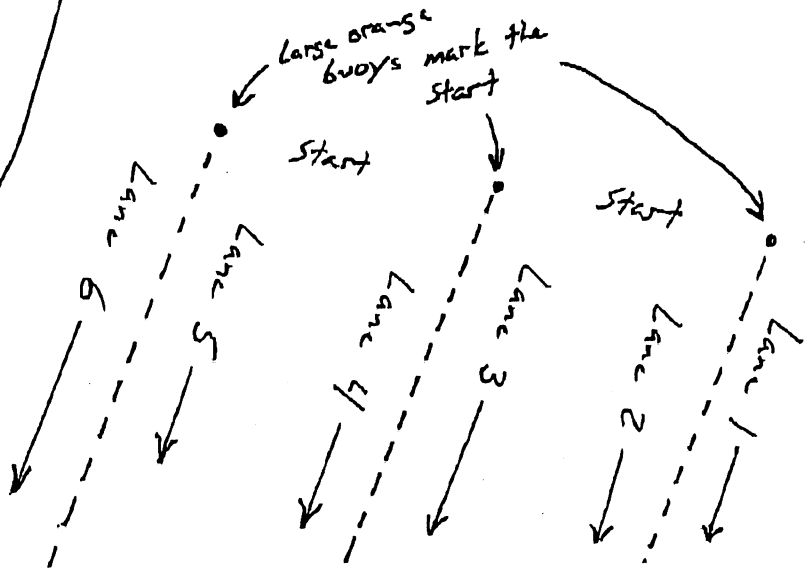 Large orange
buoys mark the
start
Start
Start
Lane 6
Lane 5
Lane 4
Lane 3
Lane 2
Lane 1